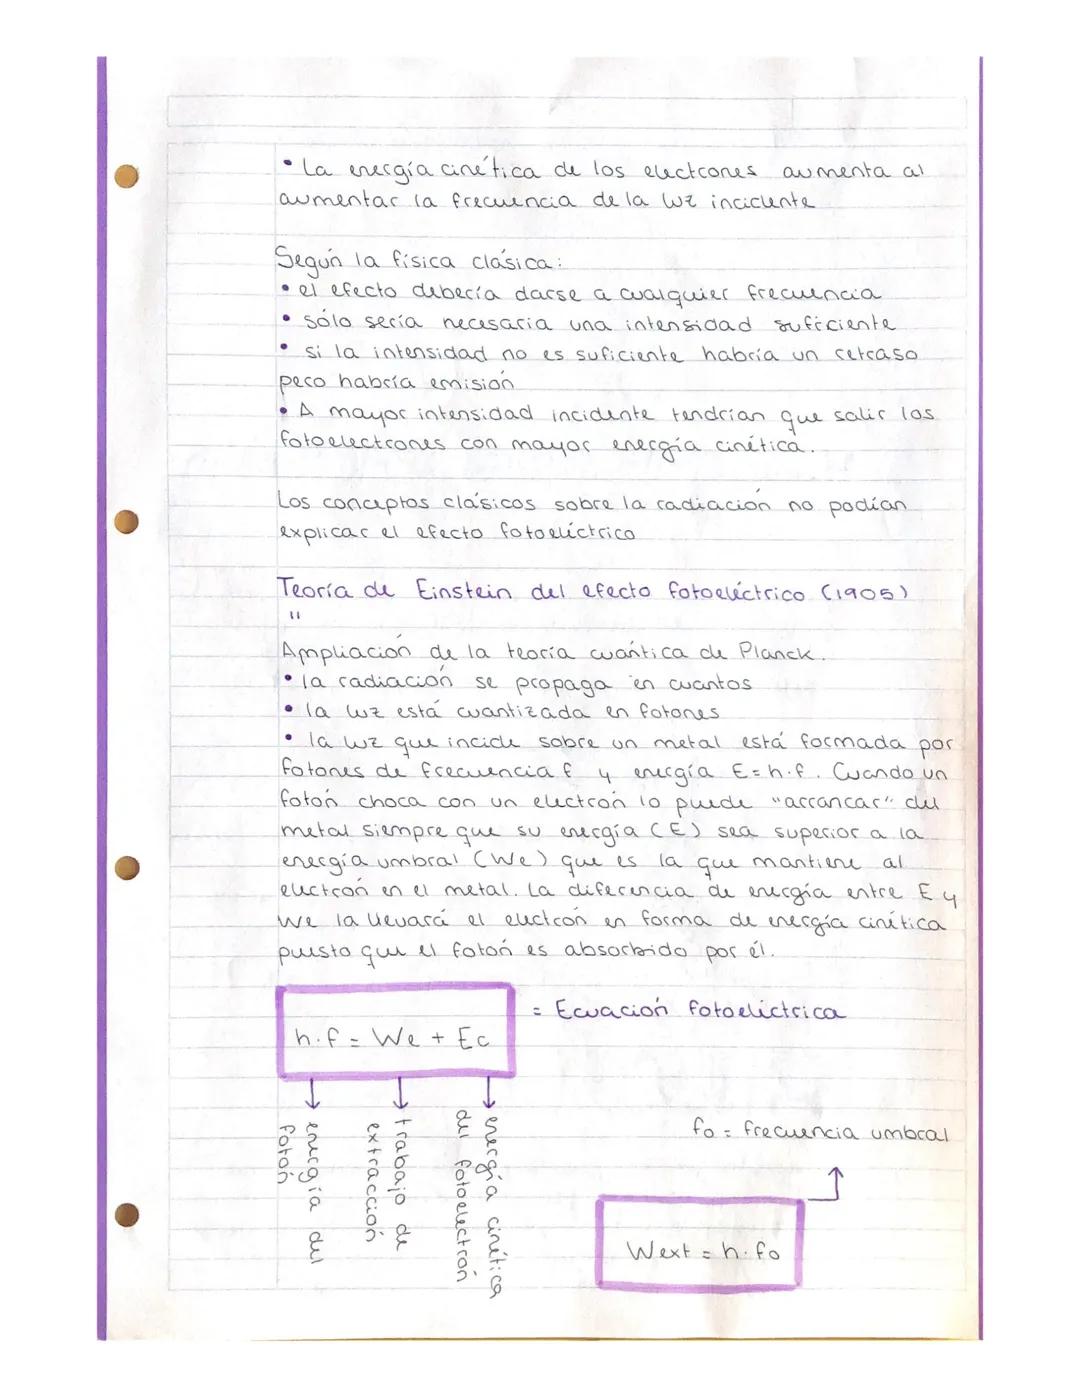 • La energía cinética de los electrones aumenta al
aumentar la frecuencia de la luz incidente
Según la física clásica:
• el efecto debería darse a cualquier frecuencia
• sólo sería necesaria una intensidad suficiente
• si la intensidad no es suficiente habría un retraso
pero habría emisión
• A mayor intensidad incidente tendrían que salir los
fotoelectrones con mayor energía cinética.
Los conceptos clásicos sobre la radiación no podían
explicar el efecto fotoeléctrico
Teoría de Einstein del efecto fotoeléctrico (1905)
"
Ampliación de la teoría cuántica de Planck.
• la radiación se propaga en cuantos
• la luz está cuantizada en fotones
• la luz que incide sobre un metal está formada por
fotones de frecuencia f y energía E=h·f. Cuando un
fotón choca con un electrón lo puede "arrancar" del
metal siempre que su energía (E) sea superior a la
energía umbral (We) que es la que mantiene al
electrón en el metal. La diferencia de energía entre E y
We la llevará el electrón en forma de energía cinética
puesto que el fotón es absorbido por él.
= Ecuación fotoeléctrica
h·f = We + Ec
energía del
fotón
trabajo de
extracción
energía cinética
del fotoelectrón
fo = frecuencia umbral
Wext = h·fo